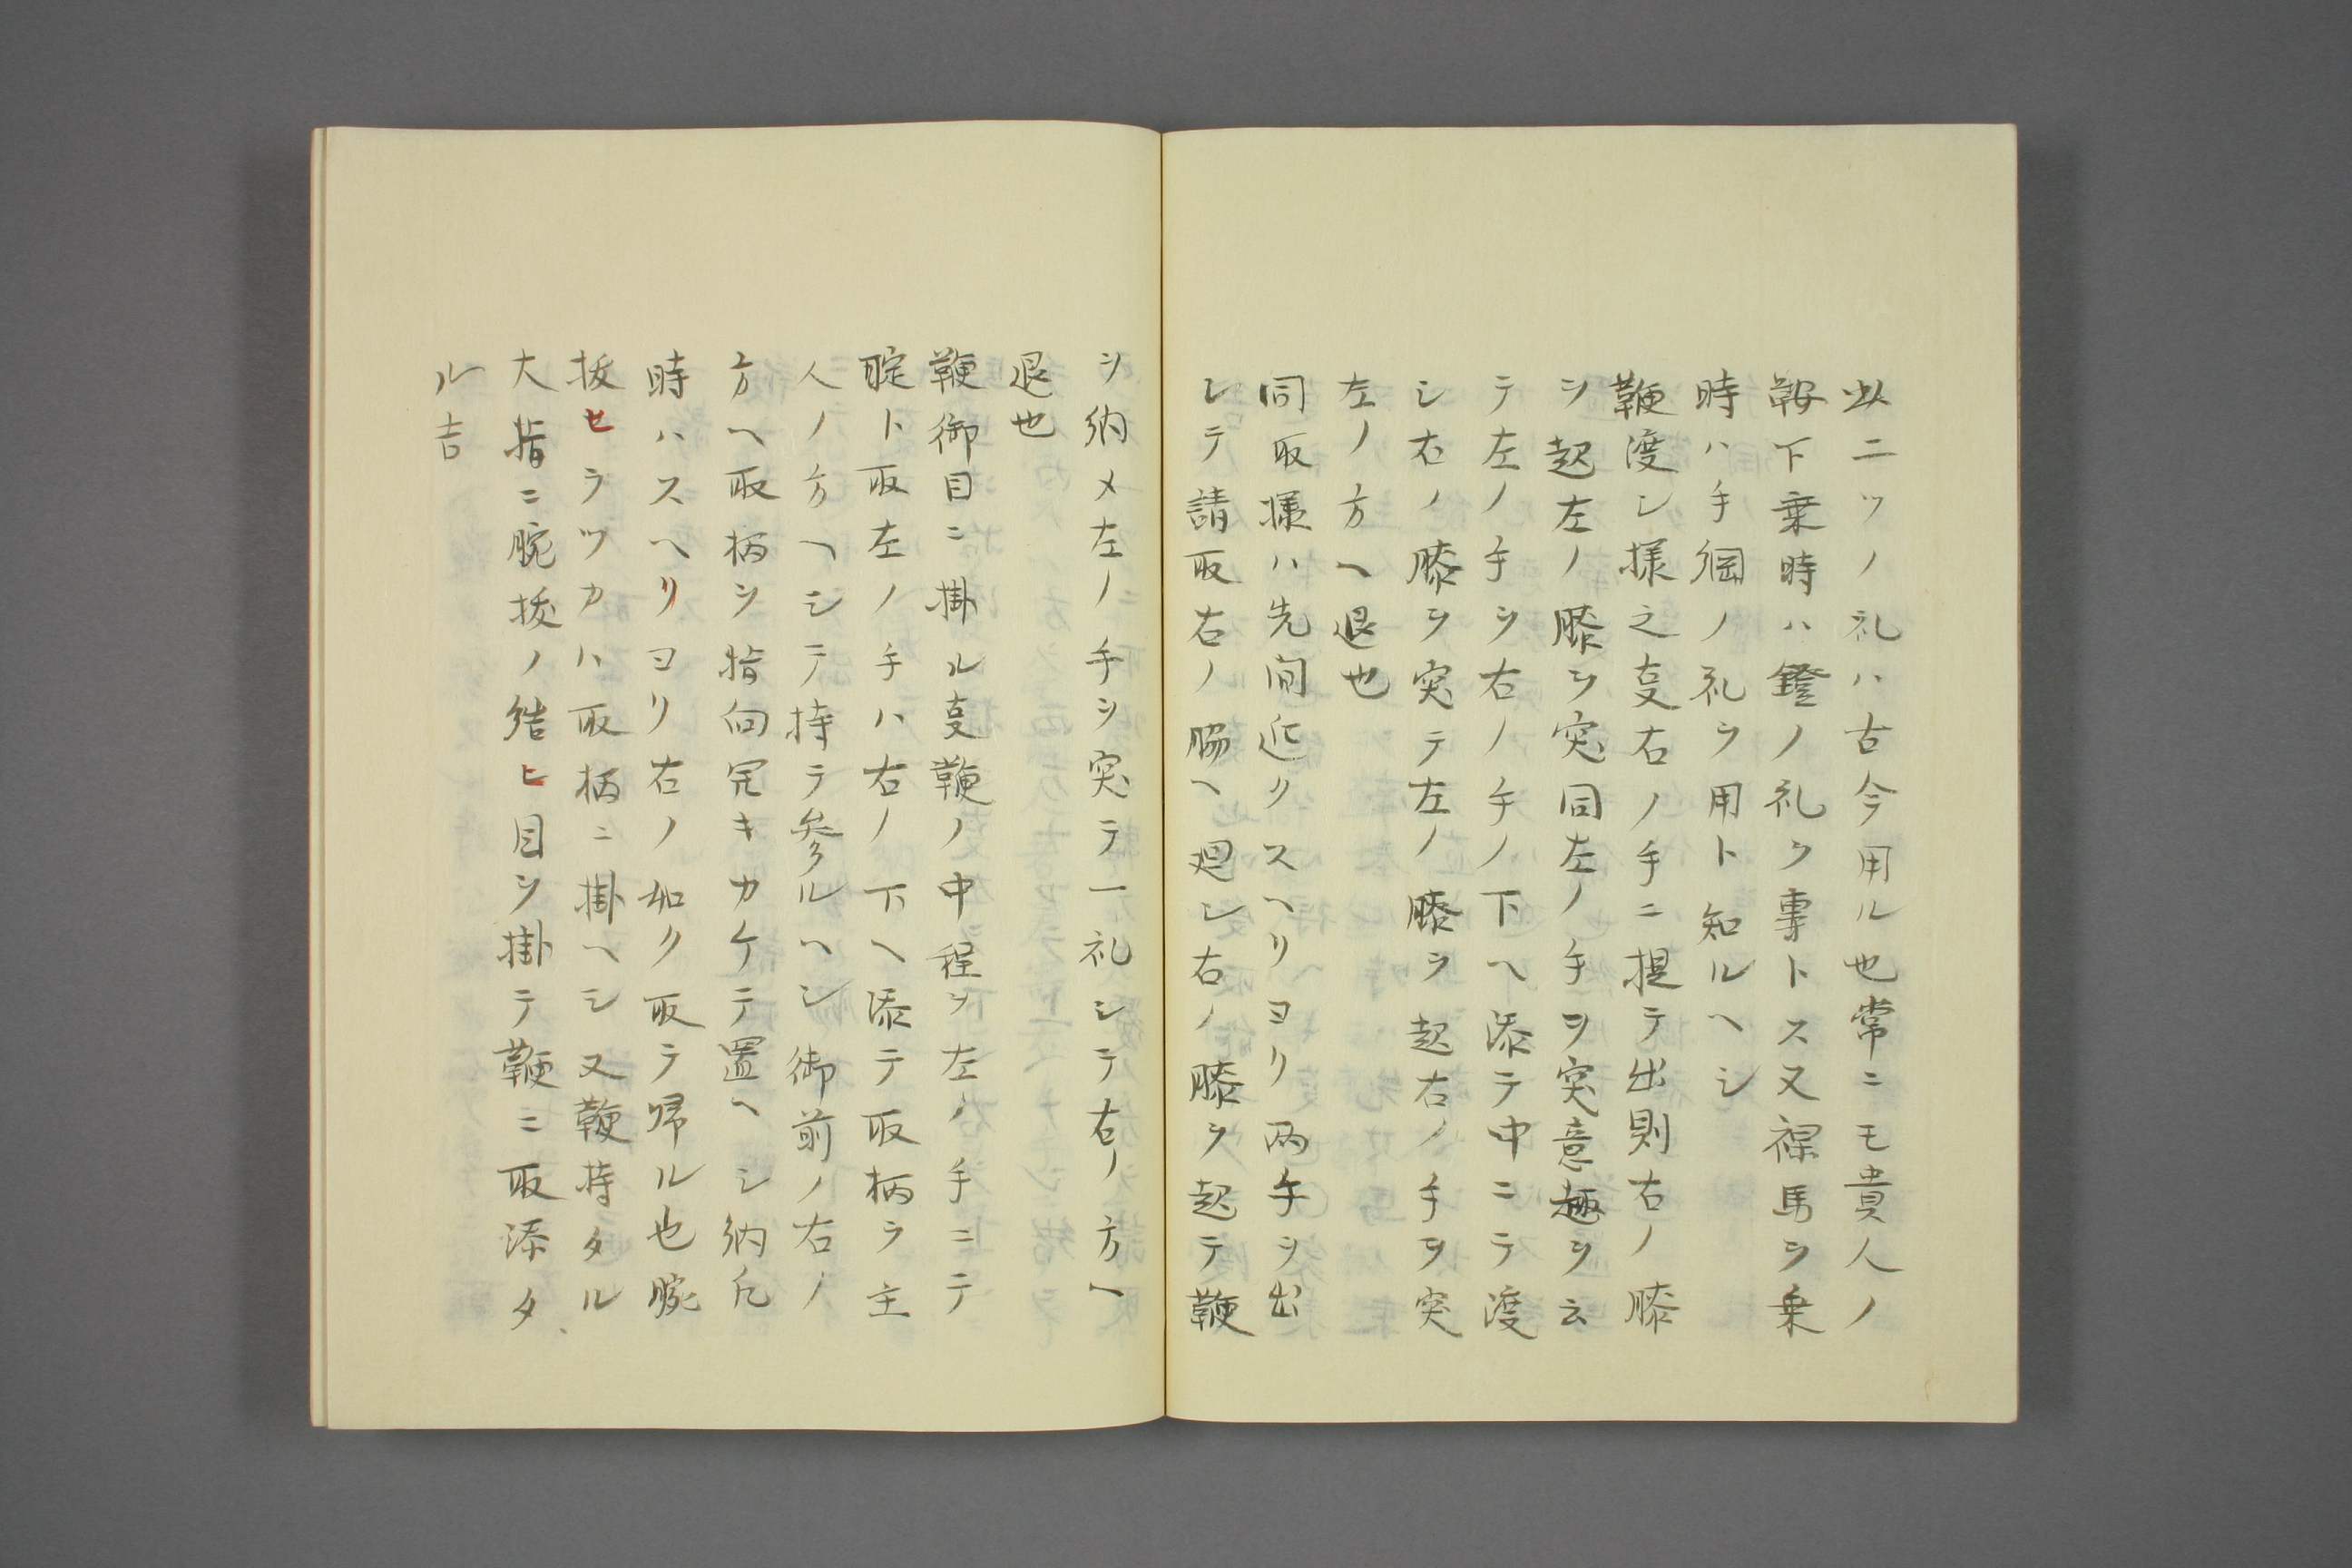 此二ツノ礼ハ古今用ル也常ニモ貴人ノ
鞍下乗時ハ鐙ノ礼ヲ専トス又裸馬ヲ乗
時ハ手綱ノ礼ヲ用ト知ルヘシ
鞭渡シ様之㕝右ノ手ニ提テ出則右ノ膝
ヲ起左ノ膝ヲ突同左ノ手ヲ突意趣ヲ云
テ左ノ手ヲ右ノ手ノ下ヘ添テ中ニテ渡
シ右ノ膝ヲ突テ左ノ膝ヲ起右ノ手ヲ突
左ノ方ヘ退也
同取様ハ先間近クスヘリヨリ両手ヲ出
シテ請取右ノ脇ヘ廻シ右ノ膝ヲ起テ鞭
ヲ納メ左ノ手ヲ突テ一礼シテ右ノ方ヘ
退也
鞭御目ニ掛ル㕝鞭ノ中程ヲ左ノ手ニテ
聢ト取左ノ手ハ右ノ下ヘ添テ取柄ヲ主
人ノ方ヘシテ持テ参ルヘシ御前ノ右ノ
方ヘ取柄ヲ指向完キカケテ置ヘシ納凡
時ハスヘリヨリ右ノ如ク取テ帰ル也腕
抜セラツカハ取柄ニ掛ヘシ又鞭持タル
大指ニ腕抜ノ結ヒ目ヲ掛テ鞭ニ取添タ
ル吉